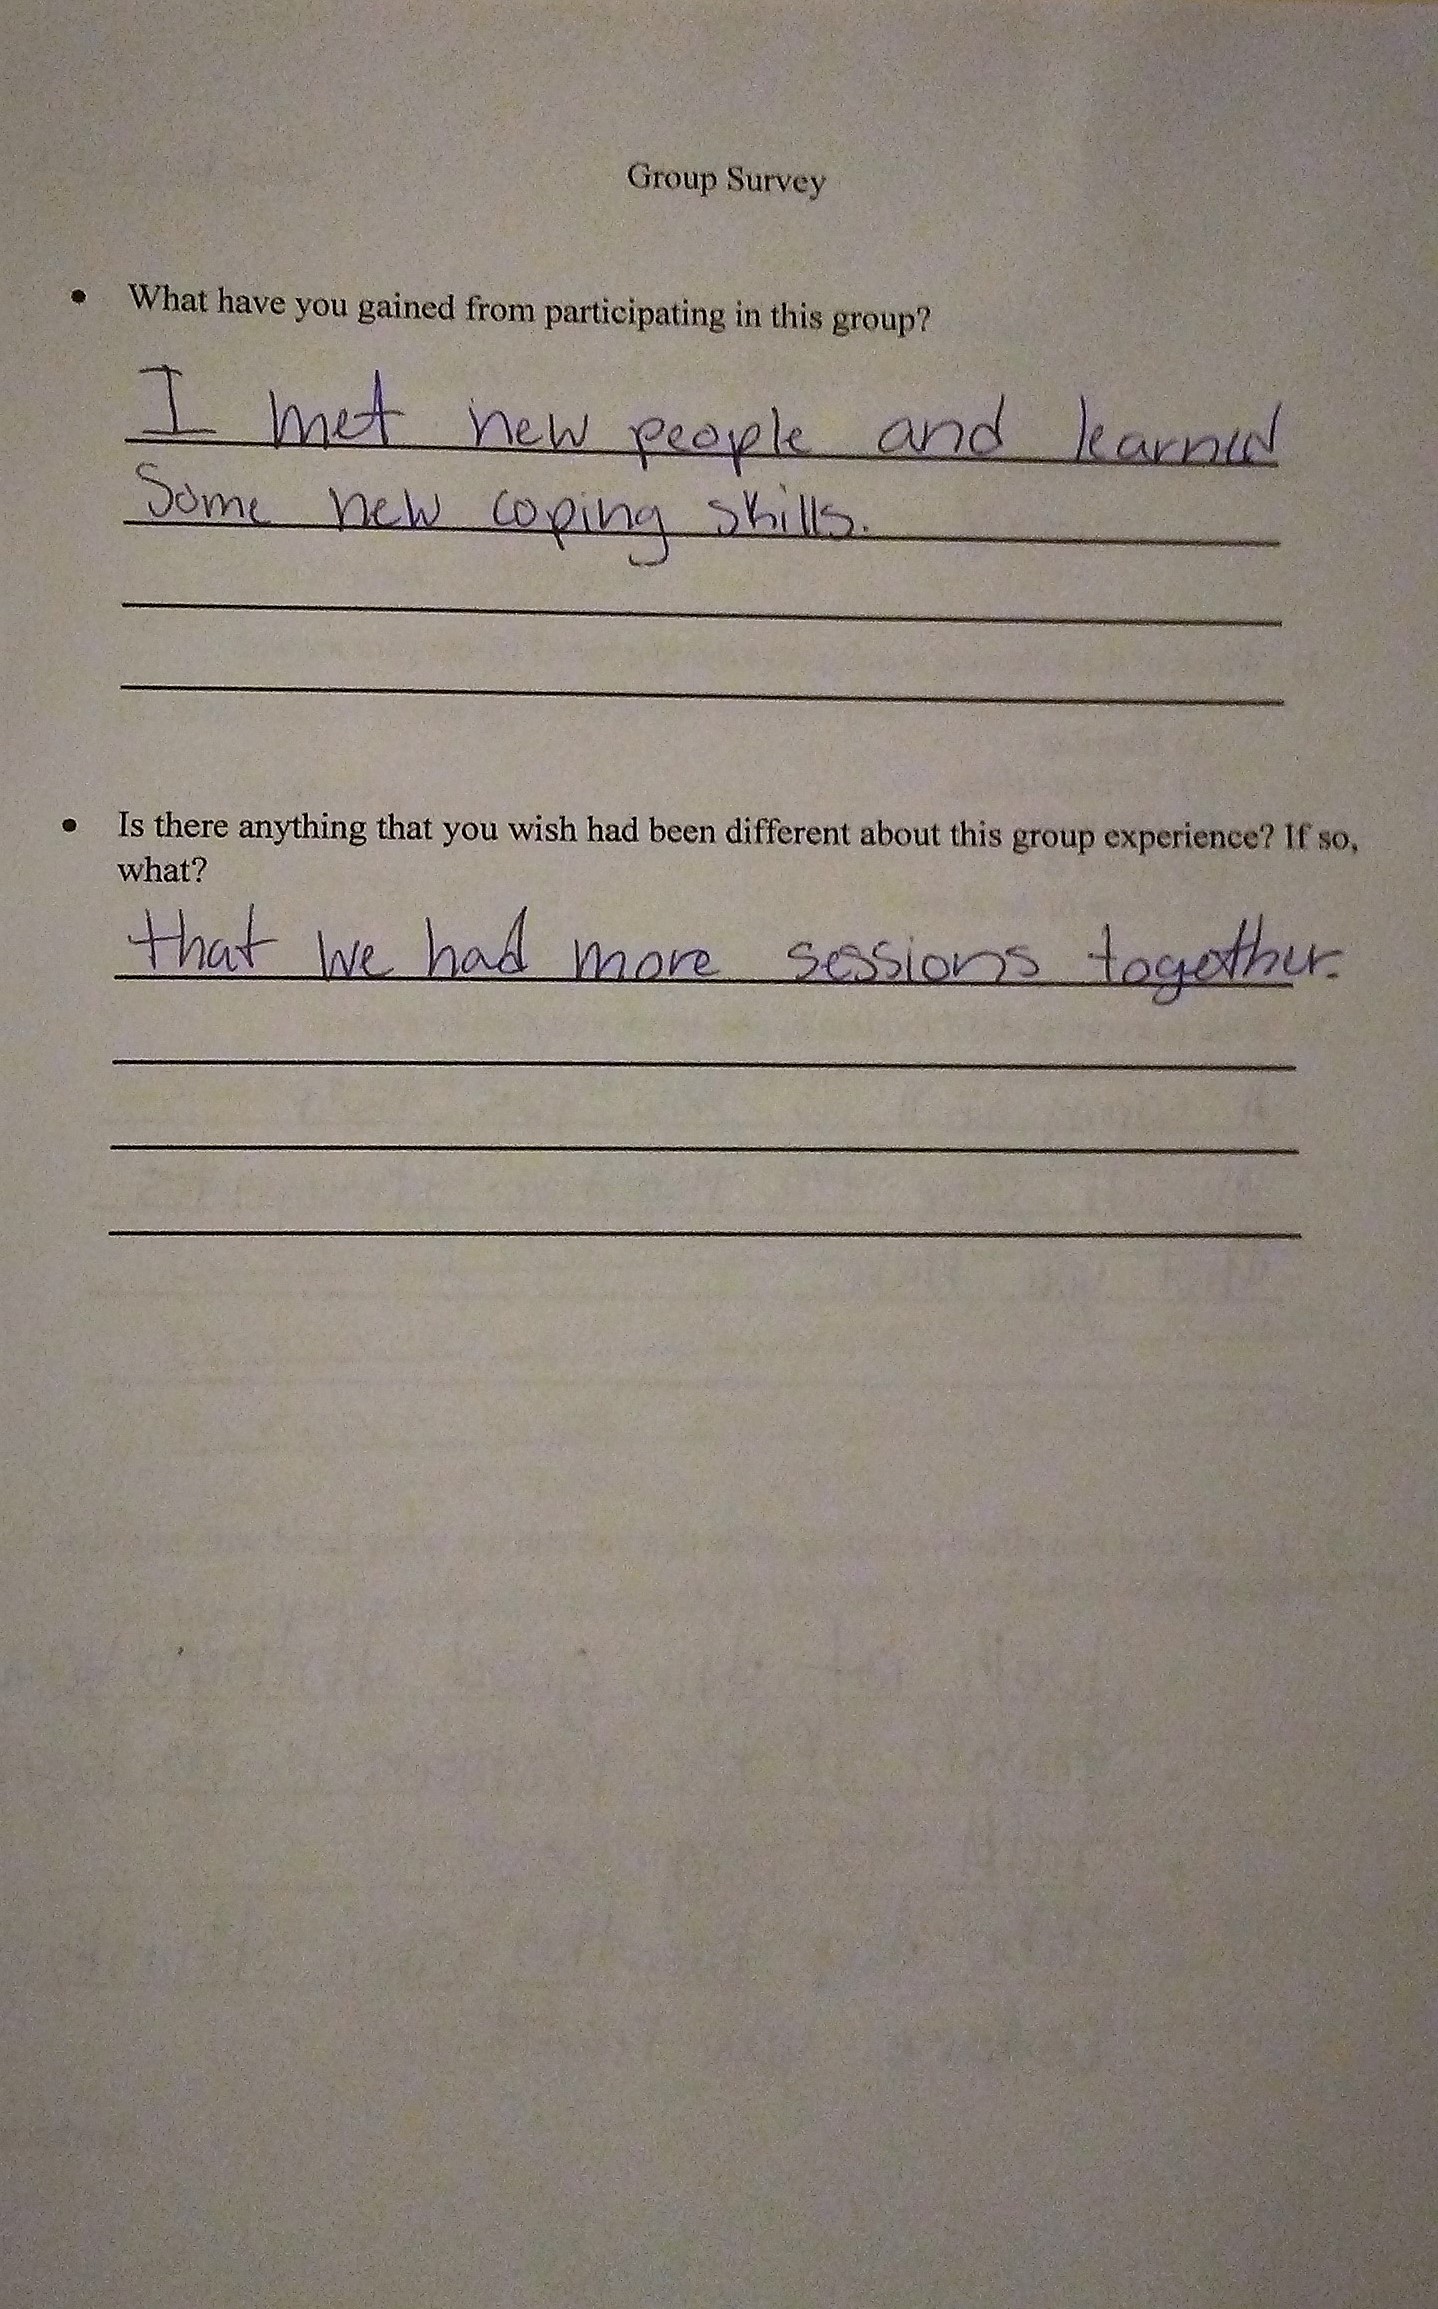 Group Survey
• What have you gained from participating in this group?
I met new people and learned
Some new coping skills.
• Is there anything that you wish had been different about this group experience? If so,
what?
that we had more sessions together.